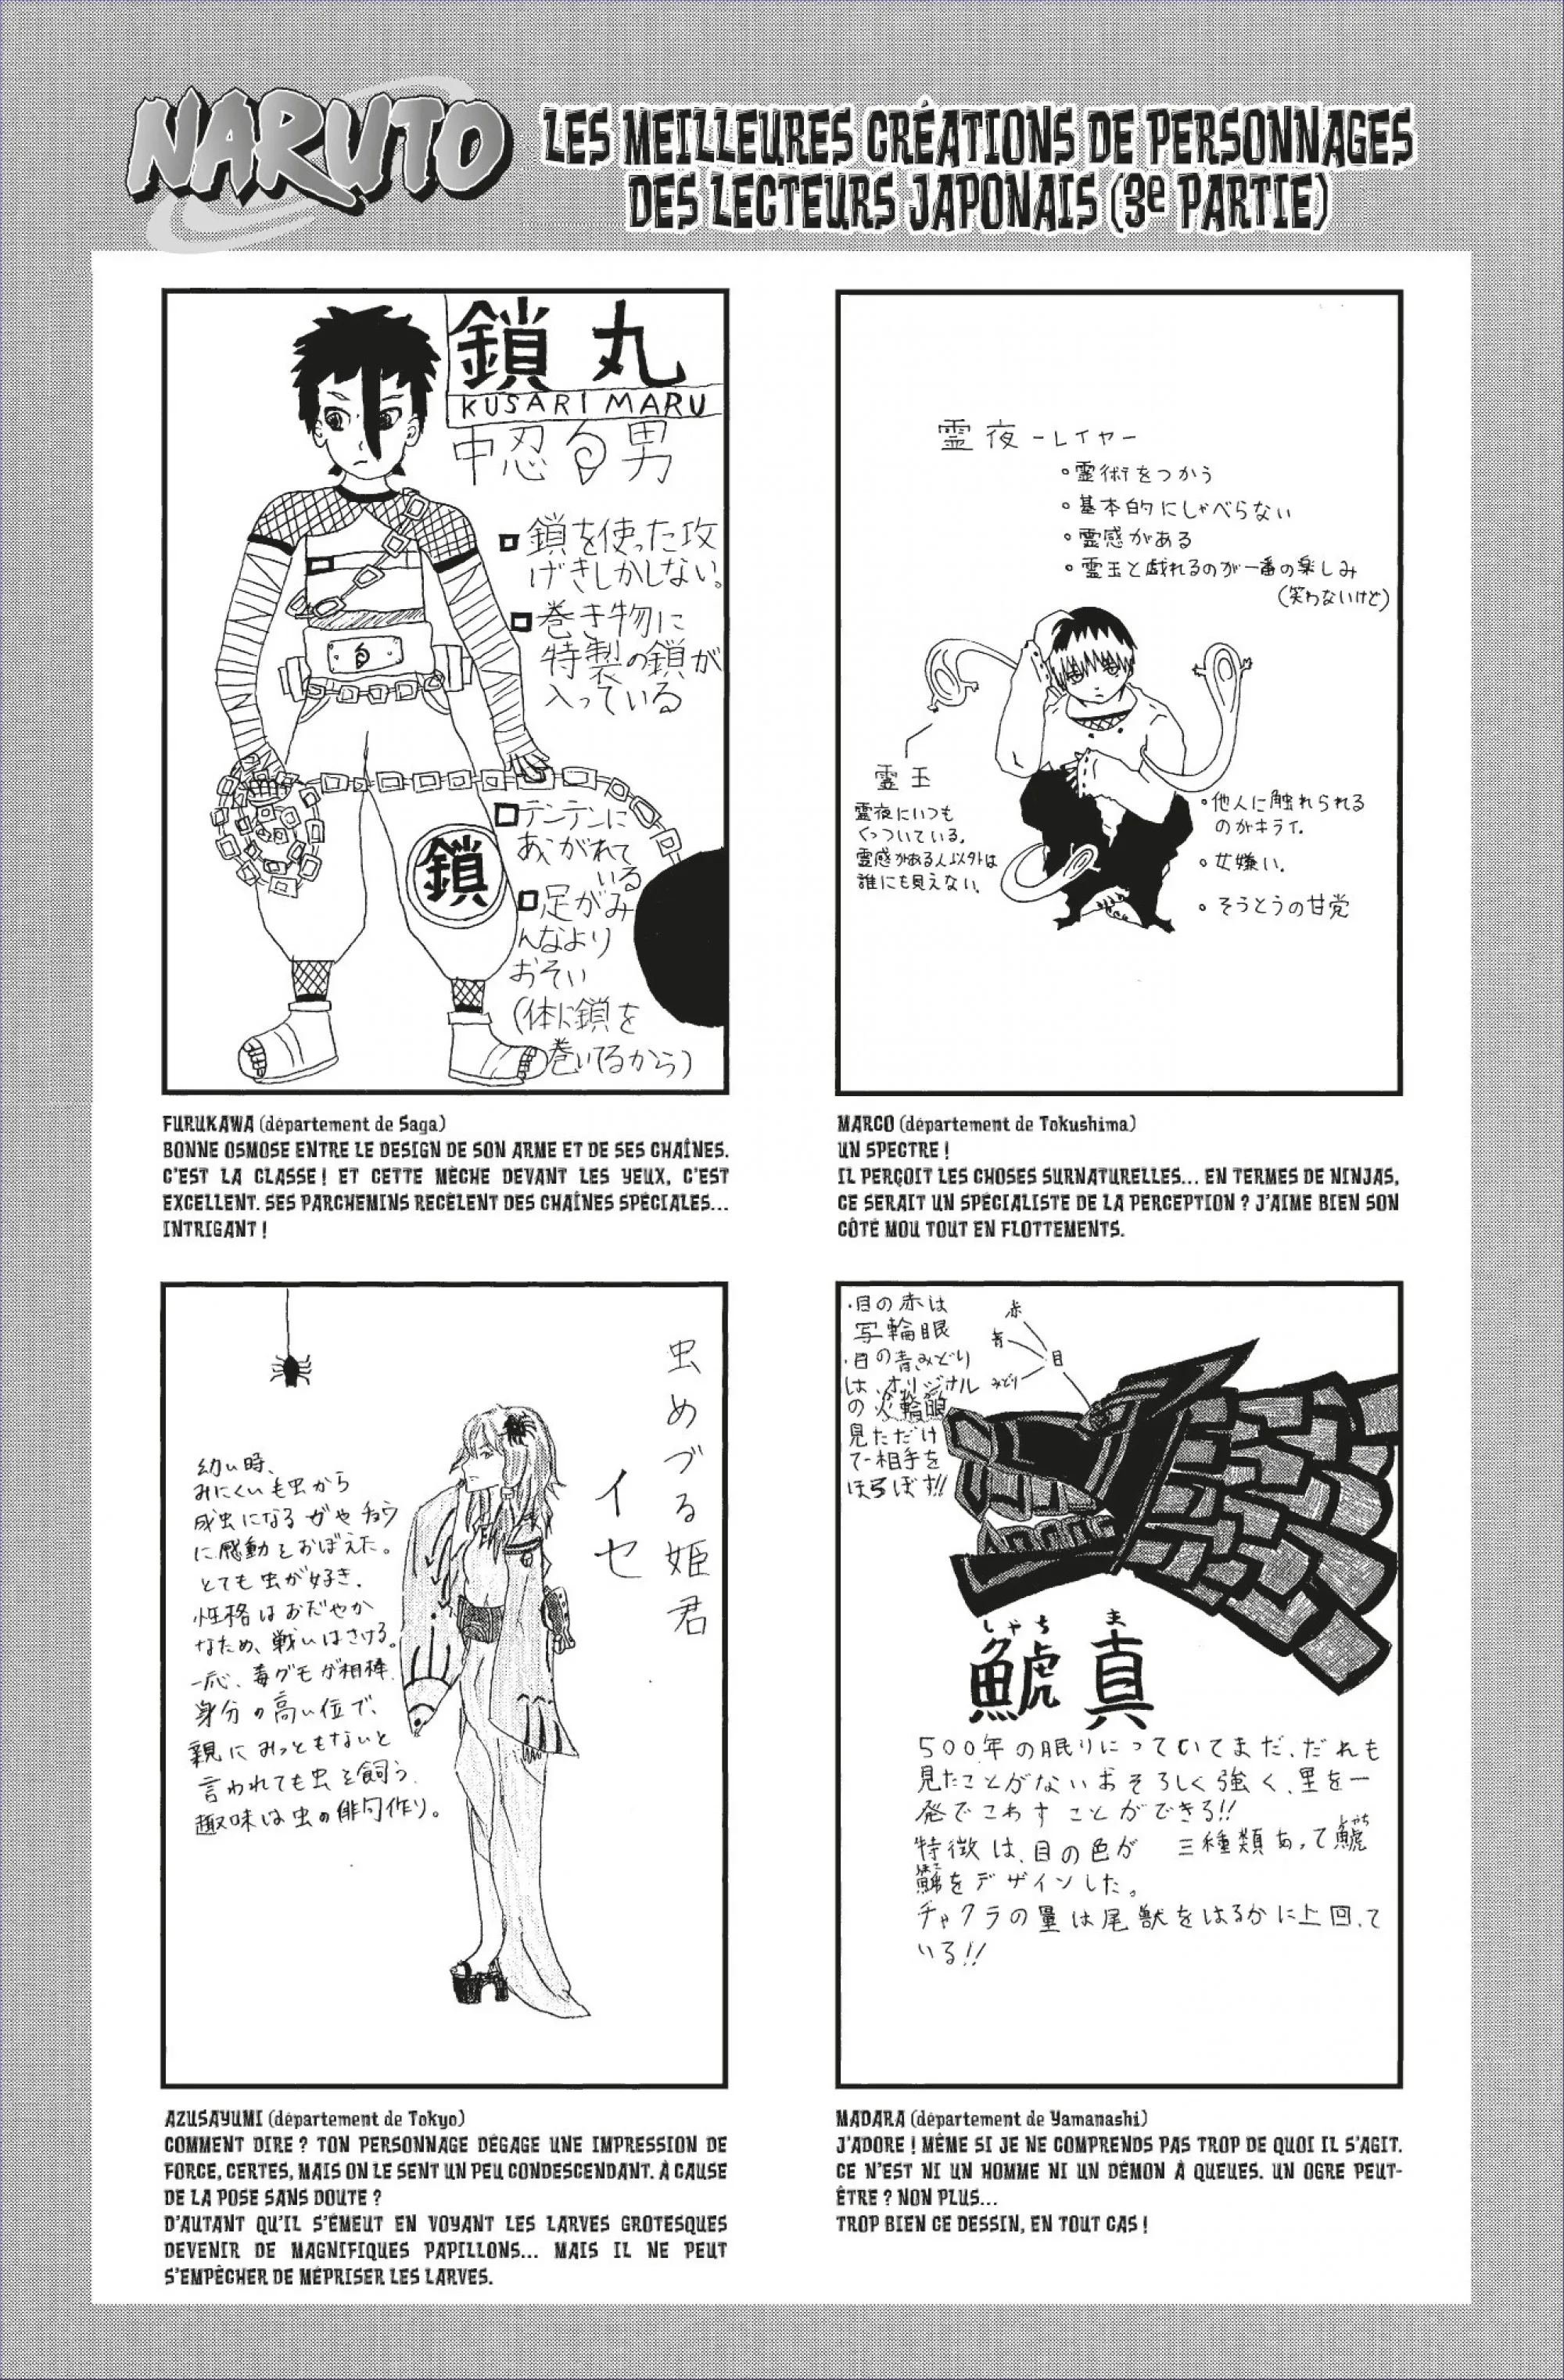 NARUTO
LES MEILLEURES CRÉATIONS DE PERSONNAGES
DES LECTEURS JAPONAIS (3e PARTIE)
鎖丸
KUSARI MARU
中忍 男
鎖を使った攻
げきしかしない。
巻き物に
特製の鎖が
入っている
テンテンに
あこがれて
いる
鎖
足がみ
んなより
おそい
(体に鎖を
巻いてるから)
FURUKAWA (département de Saga)
BONNE OSMOSE ENTRE LE DESIGN DE SON ARME ET DE SES CHAÎNES.
C'EST LA CLASSE ! ET CETTE MÈCHE DEVANT LES YEUX, C'EST
EXCELLENT. SES PARCHEMINS RECÈLENT DES CHAÎNES SPÉCIALES...
INTRIGANT !
霊夜ーレイヤー
。霊術をつかう
。基本的にしゃべらない
。霊感がある
。霊玉と戯れるのが一番の楽しみ
(笑わないけど)
霊玉
霊夜にいつも
くっついている。
霊感がある人以外は
誰にも見えない。
。他人に触れられる
のがキライ。
。女嫌い。
。そうとうの甘党
MARCO (département de Tokushima)
UN SPECTRE !
IL PERÇOIT LES CHOSES SURNATURELLES... EN TERMES DE NINJAS,
CE SERAIT UN SPÉCIALISTE DE LA PERCEPTION ? J'AIME BIEN SON
CÔTÉ MOU TOUT EN FLOTTEMENTS.
虫めづる姫君
イセ
幼い時、
みにくい毛虫から
成虫になるガやチョウ
に感動をおぼえた。
とても虫が好き。
性格はおだやか
なため、戦いはさける。
一応、毒グモが相棒。
身分の高い位で、
親にみっともないと
言われても虫を飼う。
趣味は虫の俳句作り。
AZUSAYUMI (département de Tokyo)
COMMENT DIRE ? TON PERSONNAGE DÉGAGE UNE IMPRESSION DE
FORCE, CERTES, MAIS ON LE SENT UN PEU CONDESCENDANT. À CAUSE
DE LA POSE SANS DOUTE ?
D'AUTANT QU'IL S'ÉMEUT EN VOYANT LES LARVES GROTESQUES
DEVENIR DE MAGNIFIQUES PAPILLONS... MAIS IL NE PEUT
S'EMPÊCHER DE MÉPRISER LES LARVES.
・目の赤は
写輪眼
・目の青みどり
は、オリジナル
の火輪眼
見ただけ
で相手を
ほろぼす!!
赤
青
みどり
目
しゃち ま
鯱真
500年の眠りについていてまだ、だれも
見たことがないおそろしく強く、里を一
発でこわすことができる!!
特徴は、目の色が 三種類あって鯱
をデザインした。
チャクラの量は尾獣をはるかに上回って
いる!!
MADARA (département de Yamanashi)
J'ADORE ! MÊME SI JE NE COMPRENDS PAS TROP DE QUOI IL S'AGIT.
CE N'EST NI UN HOMME NI UN DÉMON À QUEUES. UN OGRE PEUT-
ÊTRE ? NON PLUS...
TROP BIEN CE DESSIN, EN TOUT CAS !